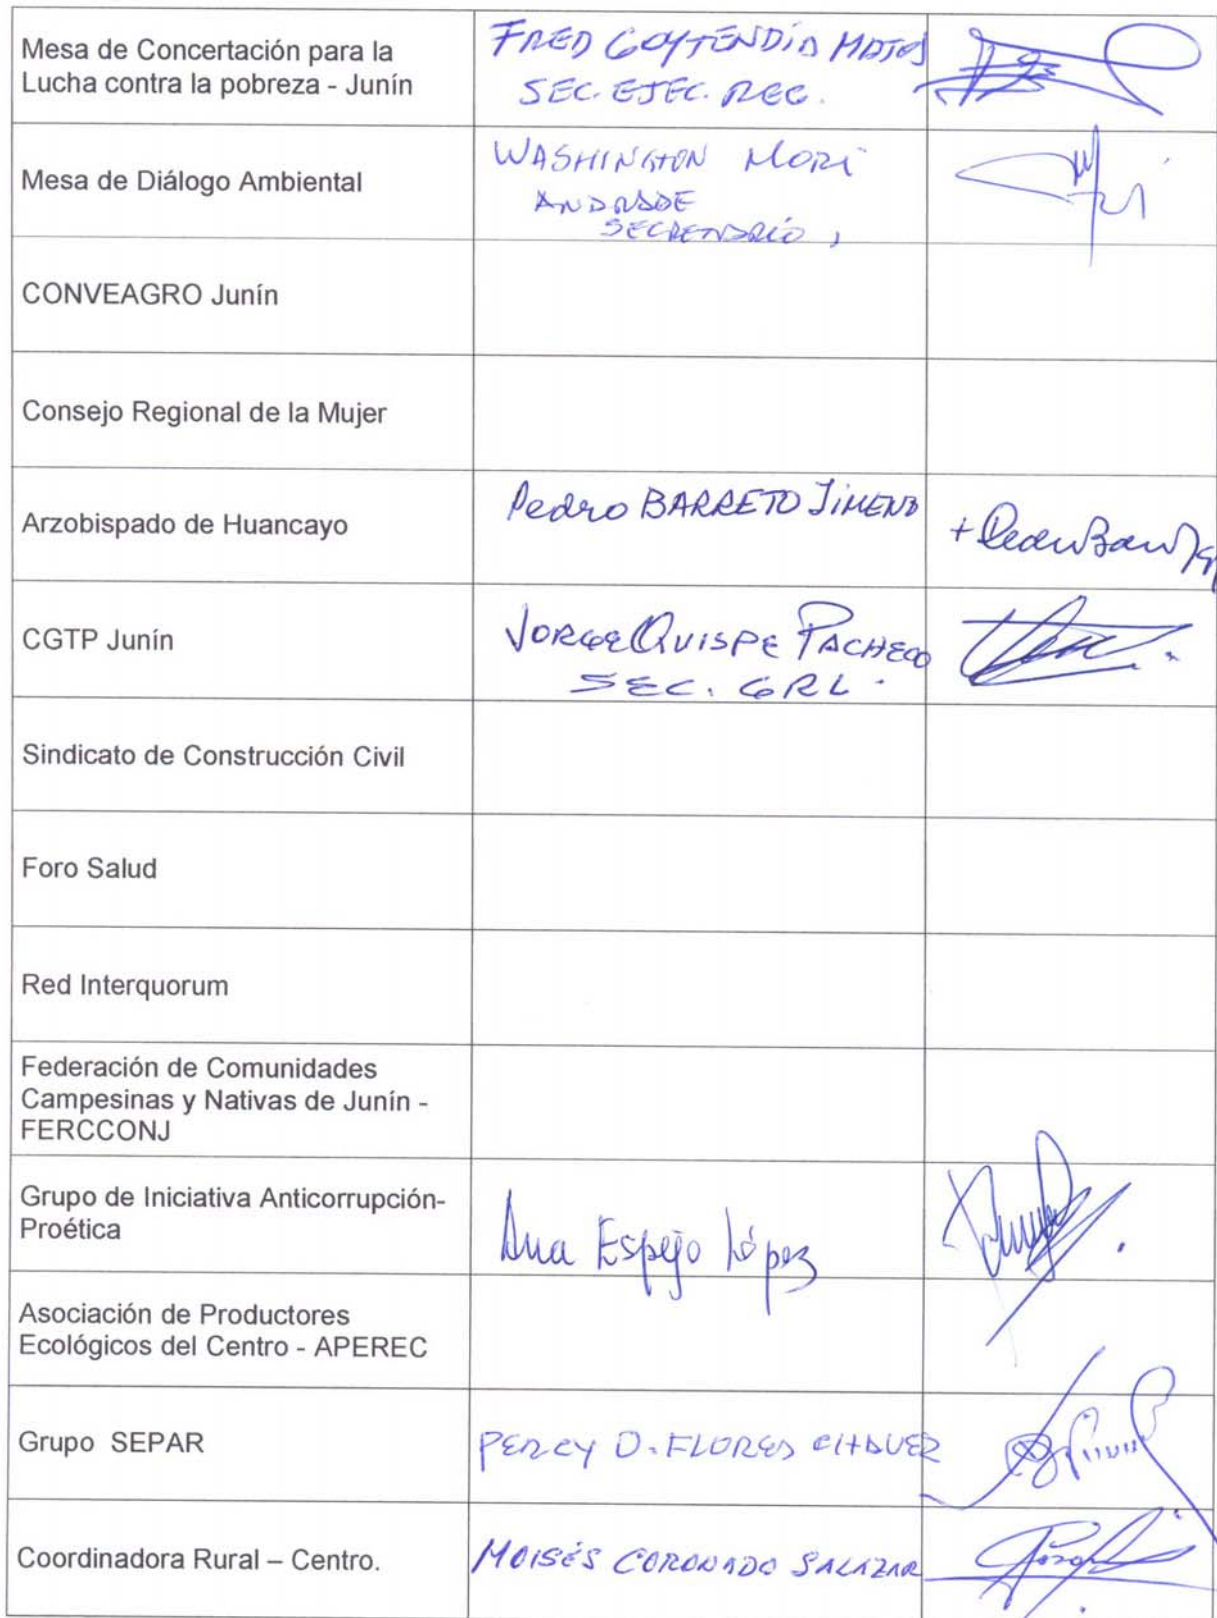 Mesa de Concertación para la
Lucha contra la pobreza - Junín
FRED GOYTENDÍA MATOS
SEC. EJEC. REG.
Mesa de Diálogo Ambiental
WASHINGTON MORI
ANDRADE
SECRETARIO,
CONVEAGRO Junín
Consejo Regional de la Mujer
Arzobispado de Huancayo
Pedro BARRETO JIMENO
CGTP Junín
JORGE QUISPE PACHECO
SEC. GRL.
Sindicato de Construcción Civil
Foro Salud
Red Interquorum
Federación de Comunidades
Campesinas y Nativas de Junín -
FERCCONJ
Grupo de Iniciativa Anticorrupción-
Proética
Ana Espejo López
Asociación de Productores
Ecológicos del Centro - APEREC
Grupo SEPAR
PERCY D. FLORES CHAVEZ
Coordinadora Rural – Centro.
MOISÉS CORONADO SALAZAR